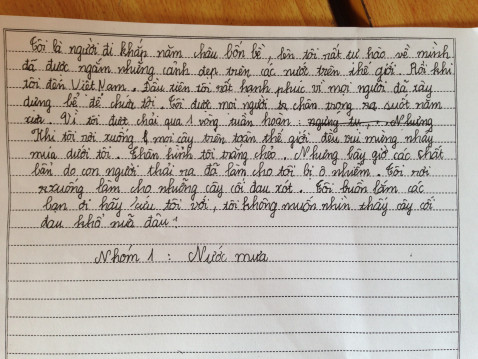 Tôi là người đi khắp năm châu bốn bể, nên tôi rất tự hào về mình
đã được ngắm những cảnh đẹp trên các nước trên thế giới. Rồi khi
tôi đến Việt Nam. Đầu tiên tôi rất hạnh phúc vì mọi người đã xây
dựng bể để chứa tôi. Tôi được mọi người trân trọng ra suốt năm
xưa. Vì tôi được trải qua 1 vòng tuần hoàn: ngưng tụ, ... Nhưng
Khi tôi rơi xuống mọi cây trên toàn thế giới đều vui mừng nhảy
múa dưới tôi. Thân hình tôi trắng trẻo. Nhưng bây giờ các chất
bẩn do con người thải ra đã làm cho tôi bị ô nhiễm. Tôi rơi
xuống làm cho những cây cối đau xót. Tôi buồn lắm các
bạn ơi hãy cứu tôi với, tôi không muốn nhìn thấy cây cối
đau khổ nữa đâu!
Nhóm 1: Nước mưa